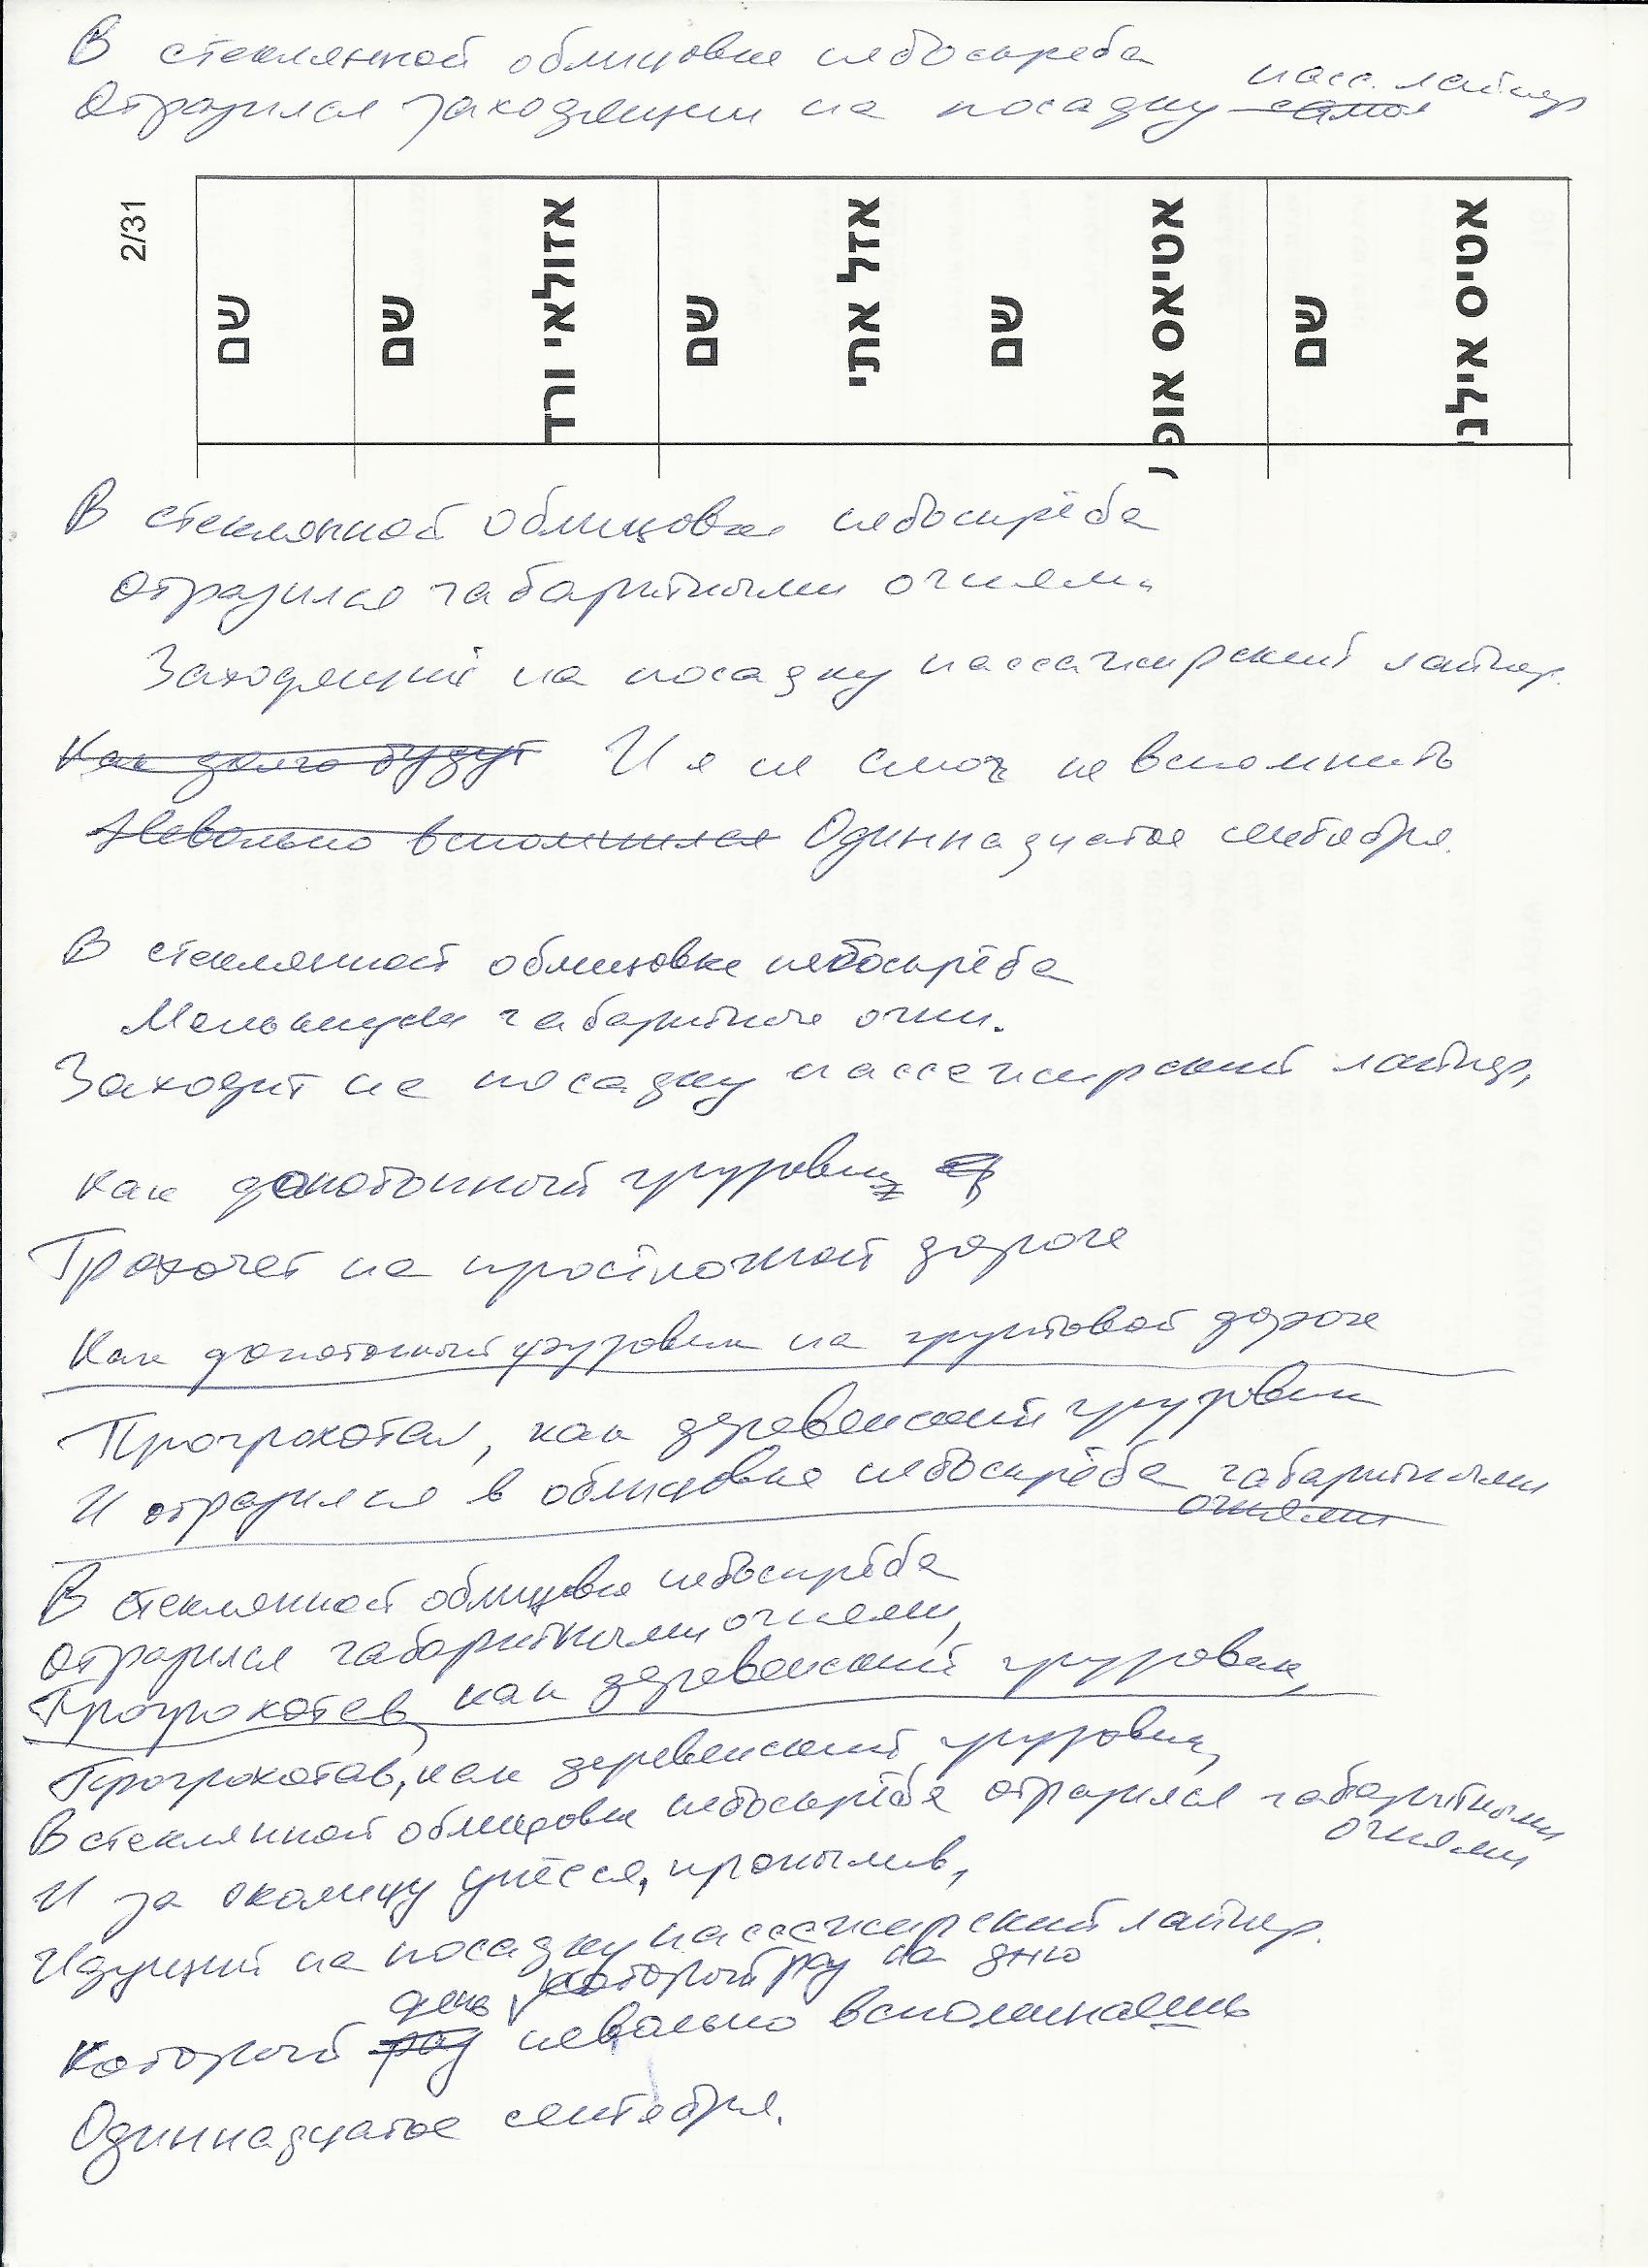 В стеклянной облицовке небоскрёба
пасс. лайнер
Отразился заходящий на посадку само
2/31
שם
שם
אזולאי ורד
שם
אזל אתי
שם
אטיאס אופ
שם
אטיס אילנ
В стеклянной облицовке небоскрёба
Отразился габаритными огнями
Заходящий на посадку пассажирский лайнер.
Как долго будут И я не смог не вспомнить
Невольно вспомнился Одиннадцатое сентября.
В стеклянной облицовке небоскрёба
Мелькнули габаритные огни.
Заходит на посадку пассажирский лайнер,
Как допотопный грузовик
Грохочет на просёлочной дороге
Как допотопный грузовик на грунтовой дороге
Прогрохотал, как деревенский грузовик
И отразился в облицовке небоскрёба габаритными
огнями
В стеклянной облицовке небоскрёба
Отразился габаритными огнями,
Прогрохотав, как деревенский грузовик,
Прогрохотав, как деревенский грузовик,
В стеклянной облицовке небоскрёба отразился габаритными
огнями
И за околицу унёсся, пропылив,
Идущий на посадку пассажирский лайнер.
день который раз на дню
Который раз невольно вспоминаешь
Одиннадцатое сентября.